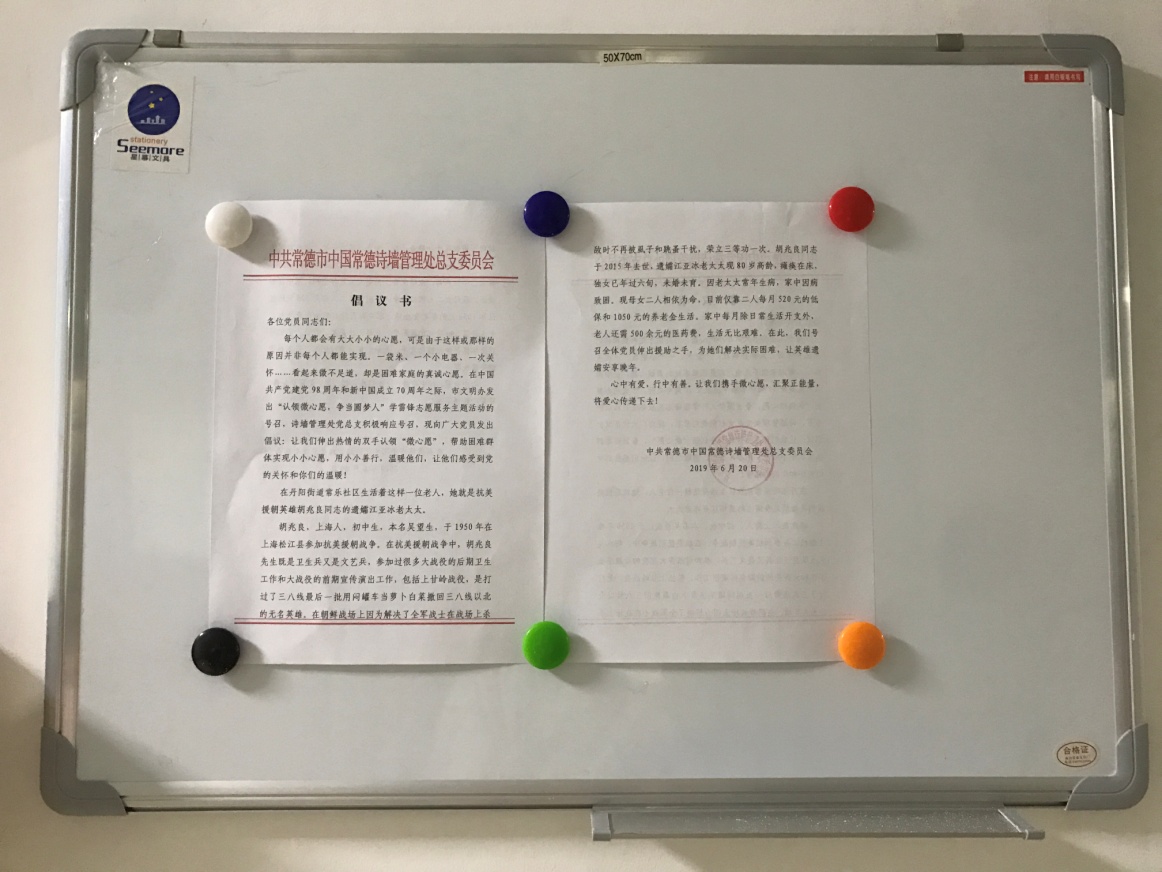 50X70cm
stationery
Seemore
星|幕|文|具
中共常德市中国常德诗墙管理处总支委员会
倡 议 书
各位党员同志们：
每个人都会有大大小小的心愿，可是由于这样或那样的
原因并非每个人都能实现。一袋米、一个小电器、一次关
怀……看起来微不足道，却是困难家庭的真诚心愿。在中国
共产党建党 98 周年和新中国成立 70 周年之际，市文明办发
出“认领微心愿，争当圆梦人”学雷锋志愿服务主题活动的
号召，诗墙管理处党总支积极响应号召，现向广大党员发出
倡议：让我们伸出热情的双手认领“微心愿”，帮助困难群
体实现小小心愿，用小小善行，温暖他们，让他们感受到党
的关怀和你们的温暖！
在丹阳街道常乐社区生活着这样一位老人，她就是抗美
援朝英雄胡兆良同志的遗孀江亚冰老太太。
胡兆良，上海人，初中生，本名吴望生，于 1950 年在
上海松江县参加抗美援朝战争。在抗美援朝战争中，胡兆良
先生既是卫生兵又是文艺兵，参加过很多大战役的后期卫生
工作和大战役的前期宣传演出工作，包括上甘岭战役，是打
过了三八线最后一批用闷罐车当萝卜白菜撤回三八线以北
的无名英雄。在朝鲜战场上因为解决了全军战士在战场上杀
敌时不再被虱子和跳蚤干扰，荣立三等功一次。胡兆良同志
于 2015 年去世，遗孀江亚冰老太太现 80 岁高龄，瘫痪在床，
独女已年过六旬，未婚未育。因老太太常年生病，家中因病
致困。现母女二人相依为命，目前仅靠二人每月 520 元的低
保和 1050 元的养老金生活。家中每月除日常生活开支外，
老人还需 500 余元的医药费，生活无比艰难。在此，我们号
召全体党员伸出援助之手，为她们解决实际困难，让英雄遗
孀安享晚年。
心中有爱，行中有善。让我们携手微心愿，汇聚正能量，
将爱心传递下去！
中共常德市中国常德诗墙管理处总支委员会
2019 年 6 月 20 日
合格证